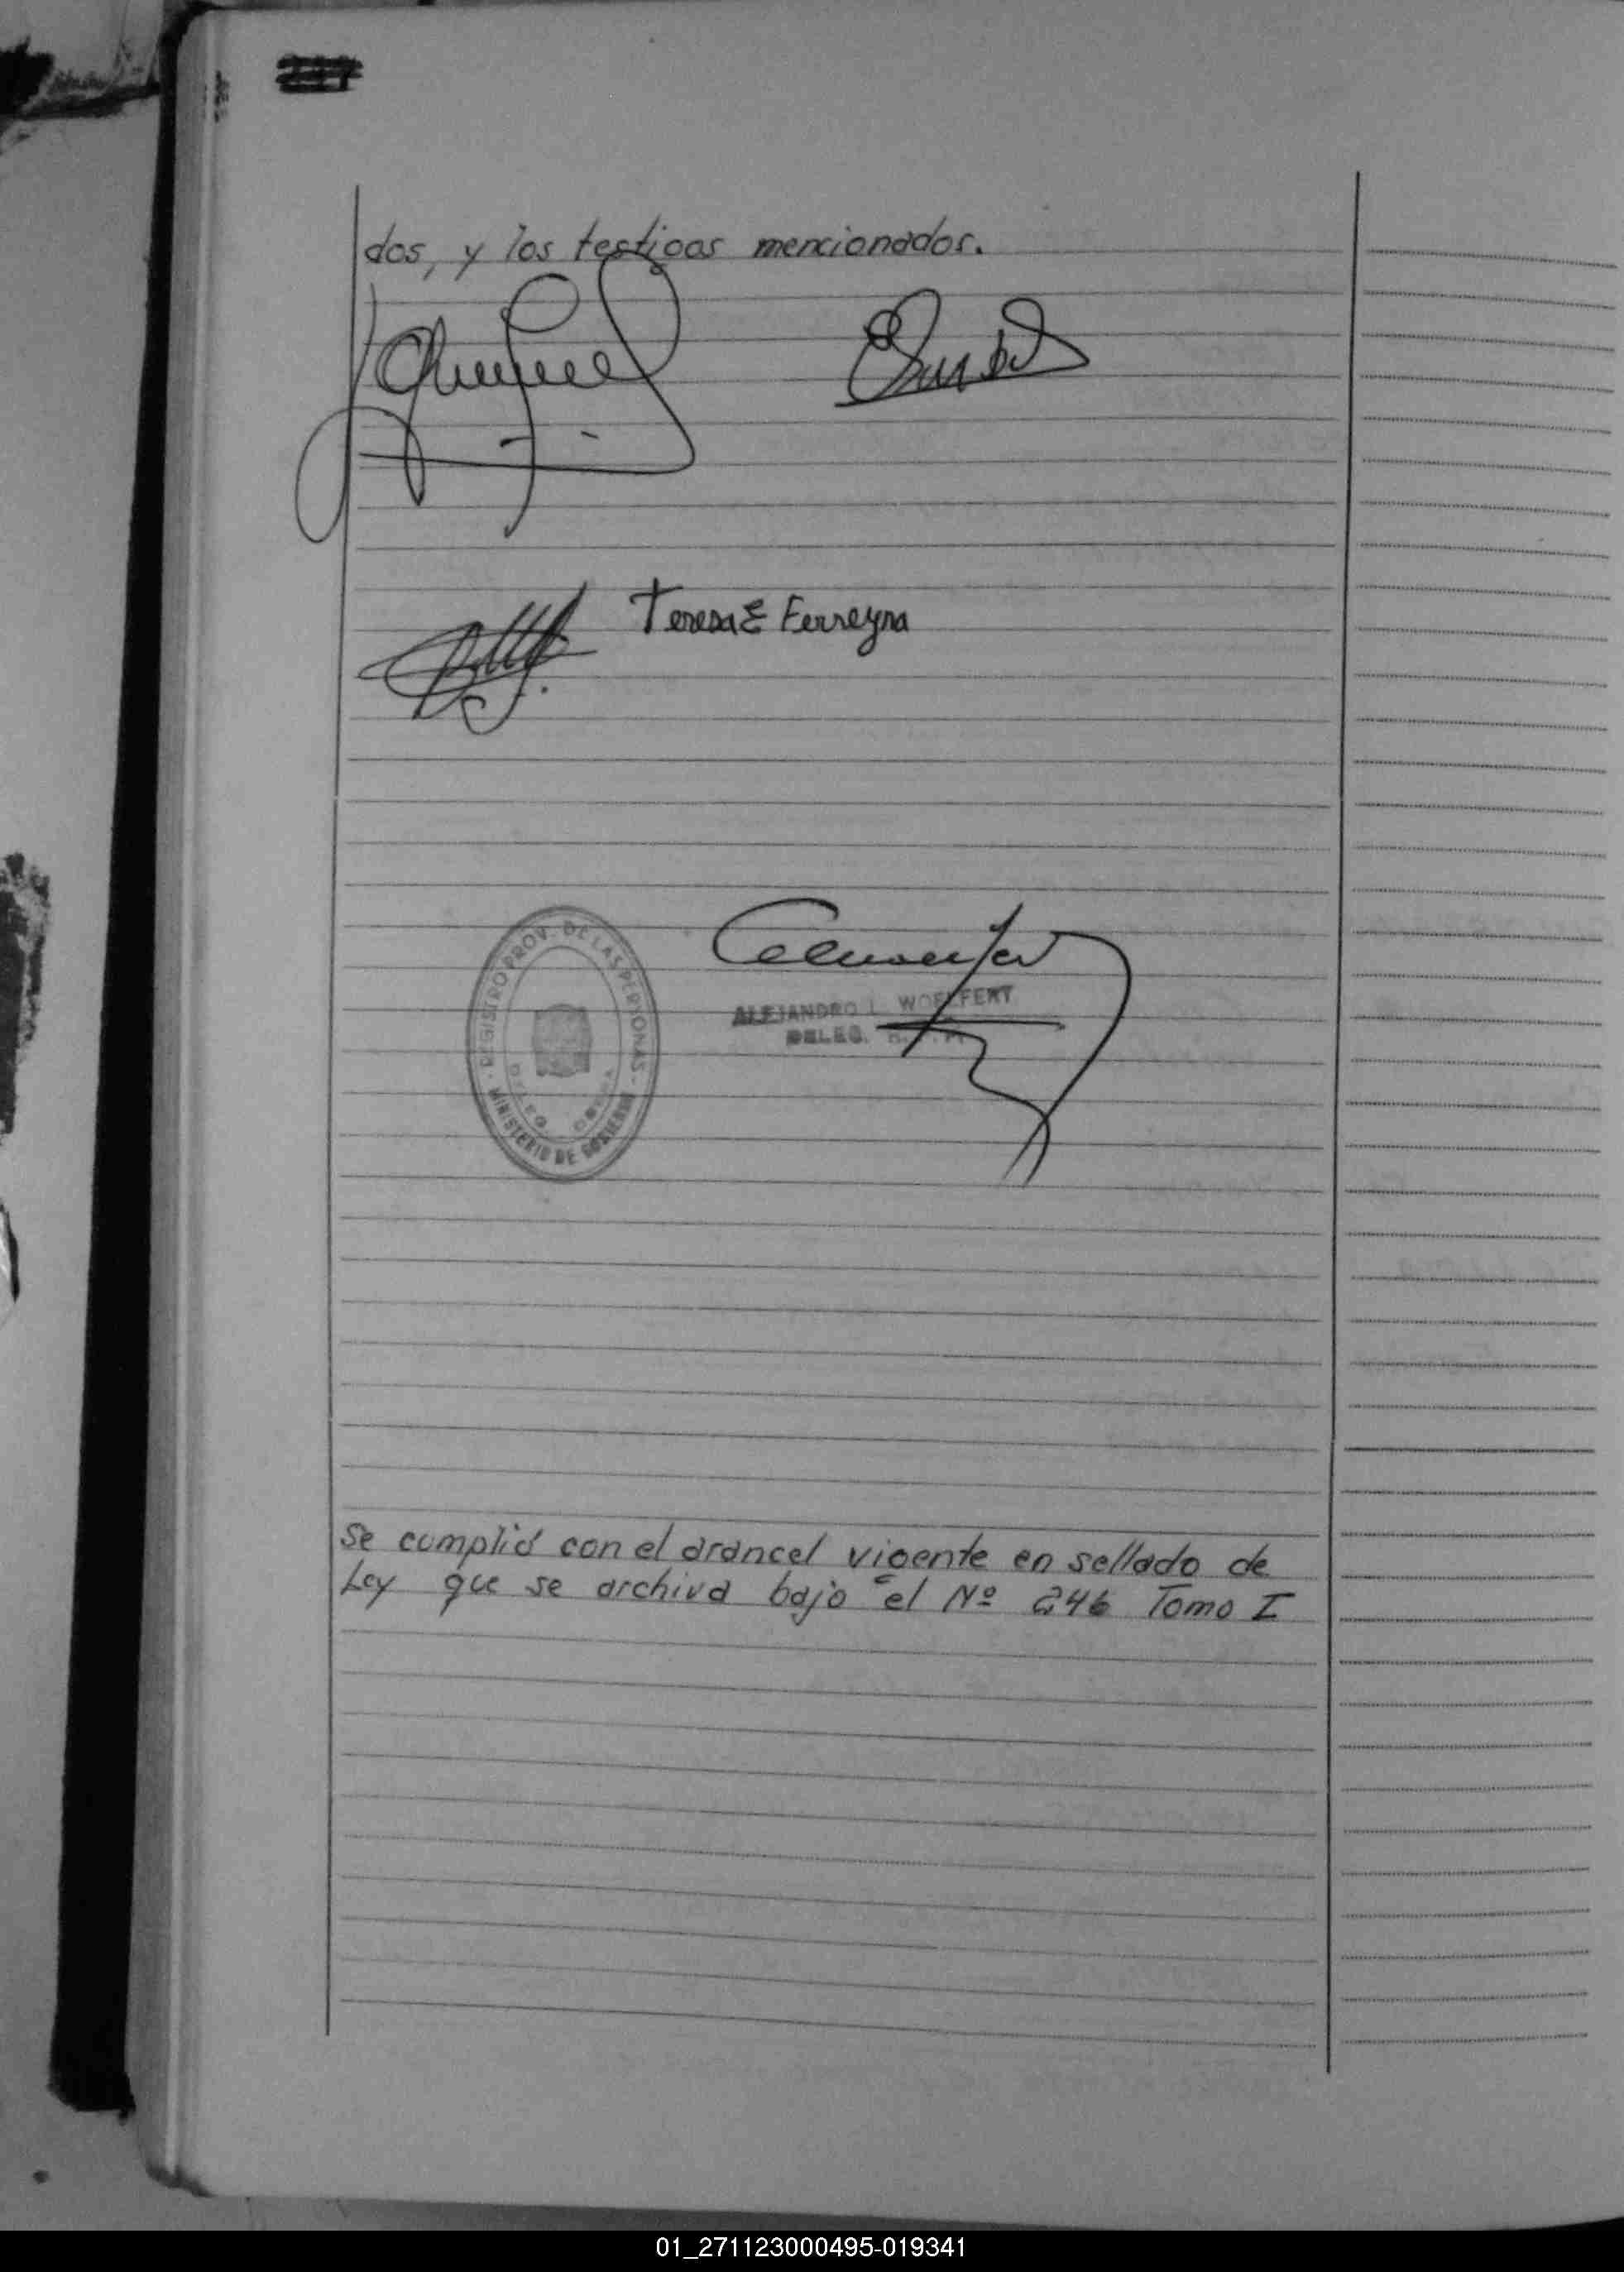 dos, y los testigos mencionados.
Teresa E Ferreyra
REGISTRO PROV. DE LAS PERSONAS
MINISTERIO DE GOBIERNO
DELEG
ALEJANDRO L. WOELFERT
DELEG.
Se cumplió con el arancel vigente en sellado de
Ley que se archiva bajo el Nº 246 Tomo I
01_271123000495-019341